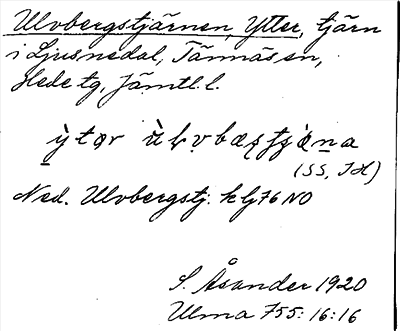 Ulvbergstjärnen, Ytter, tjärn
i Ljusnedal, Tännäs sn,
Hede tg, Jämtl. l.
(SS, JH)
Ned. Ulvbergstj. k Lj 76 NO
S. Åsander 1920
Ulma 755: 16: 16